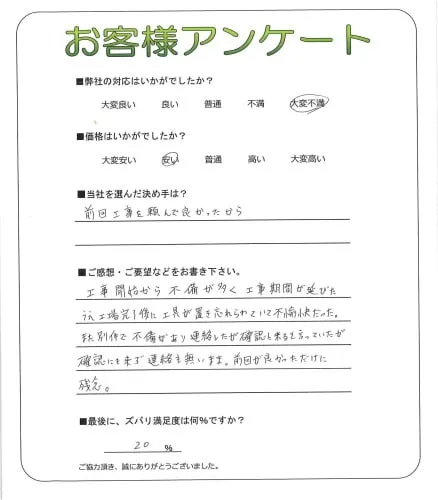 お客様アンケート
■弊社の対応はいかがでしたか？
大変良い　良い　普通　不満　大変不満
■価格はいかがでしたか？
大変安い　安い　普通　高い　大変高い
■当社を選んだ決め手は？
前回工事を頼んで良かったから
■ご感想・ご要望などをお書き下さい。
工事開始から 不備が多く 工事期間が延びた
うえ 工場完了後に 工具が置き忘れられていて不愉快だった。
また別件で 不備があり連絡したが確認に来ると言っていたが
確認にも来ず 連絡も無いまま。前回が良かっただけに
残念。
■最後に、ズバリ満足度は何％ですか？
20 ％
ご協力頂き、誠にありがとうございました。